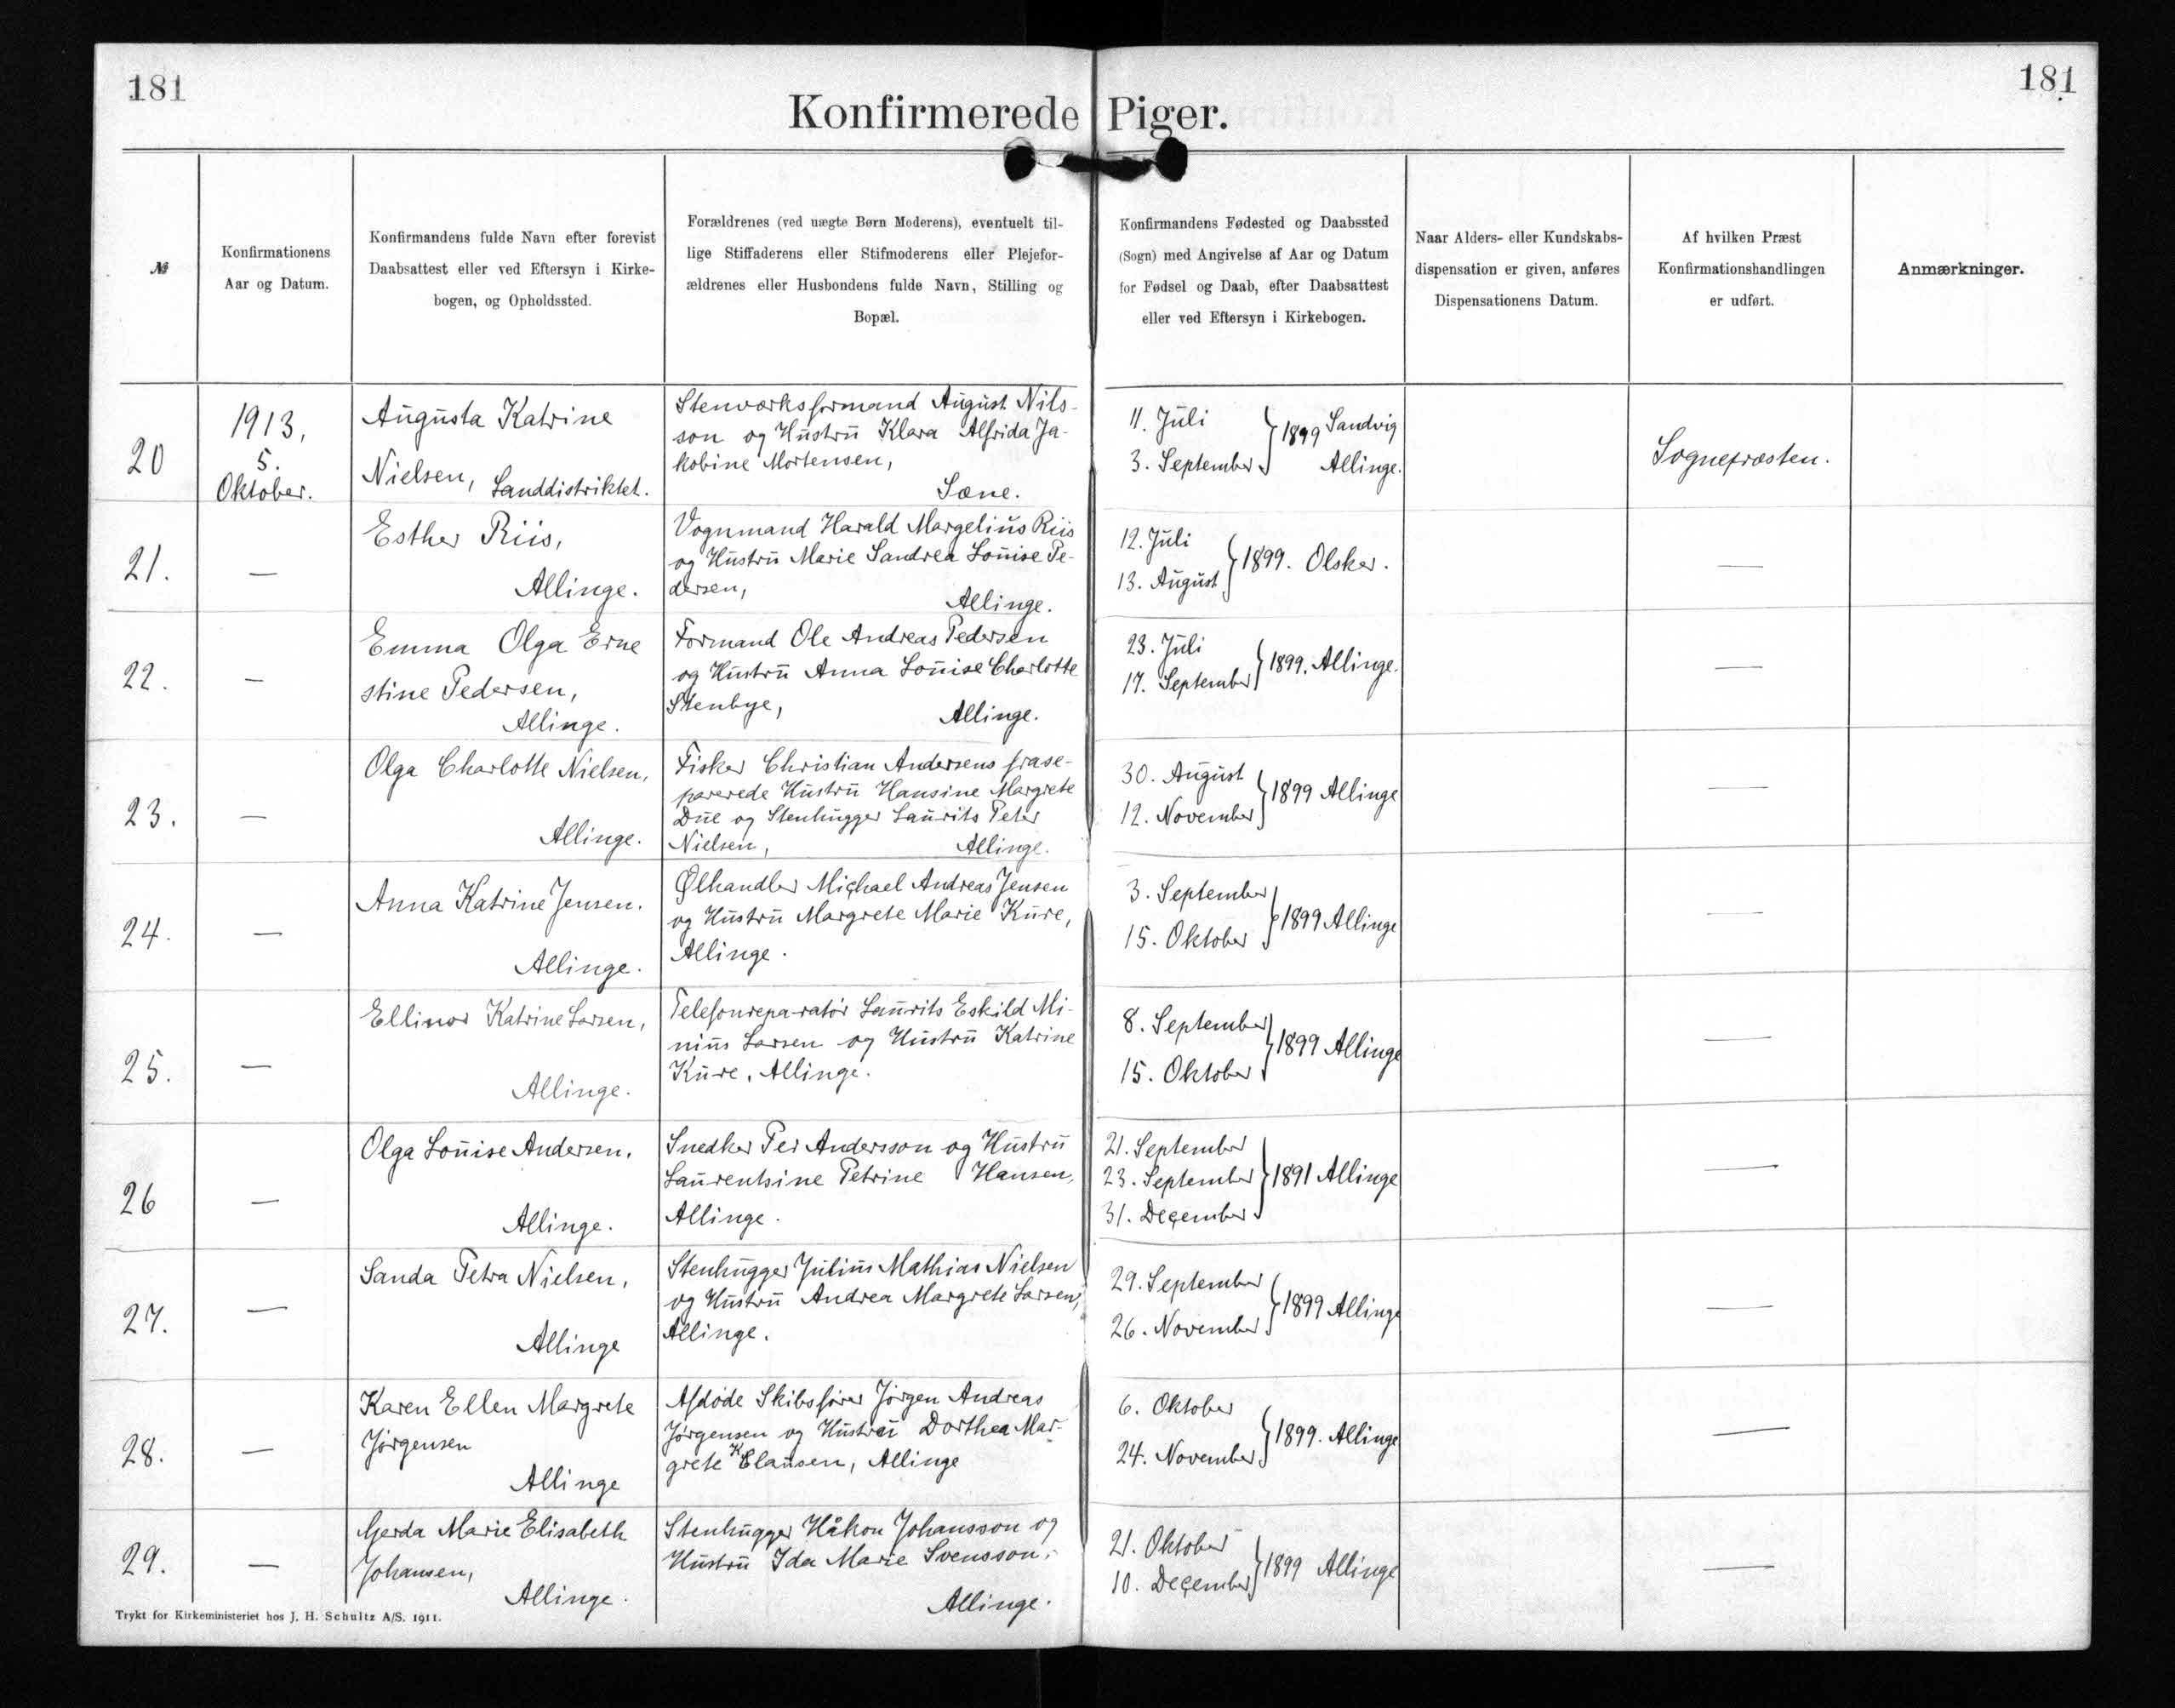 181
181
Konfirmerede Piger.
№
Konfirmationens
Aar og Datum.
Konfirmandens fulde Navn efter forevist
Daabsattest eller ved Eftersyn i Kirke-
bogen, og Opholdssted.
Forældrenes (ved uægte Børn Moderens), eventuelt til-
lige Stiffaderens eller Stifmoderens eller Plejefor-
ældrenes eller Husbondens fulde Navn, Stilling og
Bopæl.
Konfirmandens Fødested og Daabssted
(Sogn) med Angivelse af Aar og Datum
for Fødsel og Daab, efter Daabsattest
eller ved Eftersyn i Kirkebogen.
Naar Alders- eller Kundskabs-
dispensation er given, anføres
Dispensationens Datum.
Af hvilken Præst
Konfirmationshandlingen
er udført.
Anmærkninger.
20
1913,
5.
Oktober.
Augusta Katrine
Nielsen, Landdistriktet.
Stenværksformand August Nils-
son og Hustru Klara Alfrida Ja-
kobine Mortensen,
Sæne.
11. Juli
3. September
1899 Sandvig
Allinge.
Sognepræsten.
21.
—
Esther Riis,
Allinge.
Vognmand Harald Margelius Riis
og Hustru Marie Sandrea Louise Pe-
dersen,
Allinge.
12. Juli
13. August
1899. Olsker.
—
22.
—
Emma Olga Erne
stine Pedersen,
Allinge.
Formand Ole Andreas Pedersen
og Hustru Anna Louise Charlotte
Stenbye,
Allinge.
23. Juli
17. September
1899. Allinge.
—
23.
—
Olga Charlotte Nielsen,
Allinge.
Fisker Christian Andersens frase-
parerede Hustru Hansine Margrete
Due og Stenhugger Laurits Peter
Nielsen,
Allinge.
30. August
12. November
1899 Allinge
—
24.
—
Anna Katrine Jensen.
Allinge.
Ølhandler Michael Andreas Jensen
og Hustru Margrete Marie Kure,
Allinge.
3. September
15. Oktober
1899 Allinge
—
25.
—
Ellinor Katrine Larsen,
Allinge.
Telefonreparatør Laurits Eskild Mi-
nius Larsen og Hustru Katrine
Kure, Allinge.
8. September
15. Oktober
1899 Allinge
—
26
—
Olga Louise Andersen.
Allinge.
Snedker Per Andersson og Hustru
Laurentsine Petrine Hansen,
Allinge.
21. September
23. September
31. December
1891 Allinge
—
27.
—
Sanda Petra Nielsen,
Allinge
Stenhugger Julius Mathias Nielsen
og Hustru Andrea Margrete Larsen,
Allinge.
29. September
26. November
1899 Allinge
—
28.
—
Karen Ellen Margrete
Jørgensen
Allinge
Afdøde Skibsfører Jørgen Andreas
Jørgensen og Hustru Dorthea Mar-
grete Klausen, Allinge
6. Oktober
24. November
1899. Allinge
—
29.
—
Gerda Marie Elisabeth
Johansen,
Allinge.
Stenhugger Håkon Johansson og
Hustru Ida Marie Svensson,
Allinge.
21. Oktober
10. December
1899 Allinge
—
Trykt for Kirkeministeriet hos J. H. Schultz A/S. 1911.